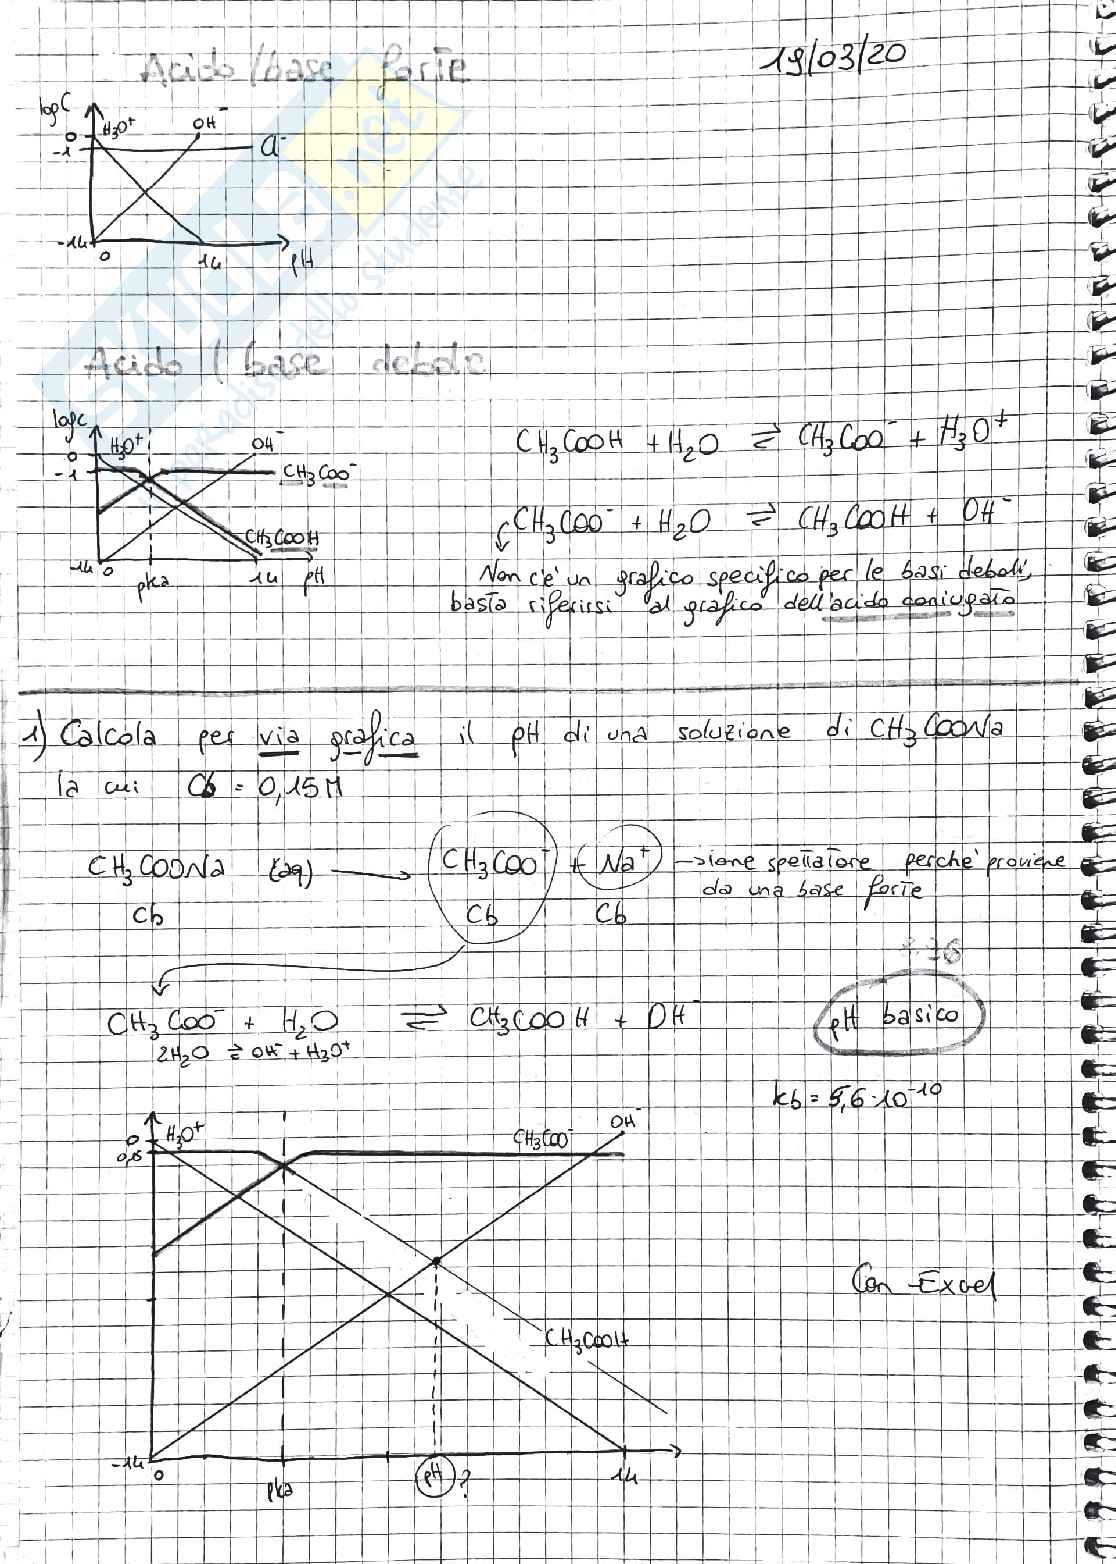 Acido/base forte
19/03/20
logC
H₃O⁺
OH⁻
0
-1
Cl⁻
-14
0
14
pH
Acido/base debole
logC
H₃O⁺
OH⁻
0
-1
CH₃COO⁻
CH₃COOH
-14
0
pka
14
pH
CH₃COOH + H₂O ⇌ CH₃COO⁻ + H₃O⁺
CH₃COO⁻ + H₂O ⇌ CH₃COOH + OH⁻
Non c'è un grafico specifico per le basi deboli,
basta riferirsi al grafico dell'acido coniugato
1) Calcola per via grafica il pH di una soluzione di CH₃COONa
la cui Cb = 0,15M
CH₃COONa (aq) → CH₃COO⁻ + Na⁺ → ione spettatore perché proviene
da una base forte
Cb Cb Cb
CH₃COO⁻ + H₂O ⇌ CH₃COOH + OH⁻
pH basico
2H₂O ⇌ OH⁻ + H₃O⁺
kb = 5,6·10⁻¹⁰
0
H₃O⁺
CH₃COO⁻
OH⁻
0,15
Con Excel
CH₃COOH
-14
0
pka
pH ?
14
SKUOLA.net
paradiso dello studente